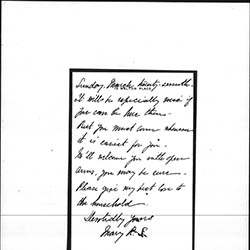 Sunday, March twenty-seventh.
It will be especially nice if
you can be here then.
But you must come whenever
it is easiest for you.
We'll welcome you with open
arms, you may be sure.
Please give my best love to
the household.
Devotedly yours
Mary R. S.